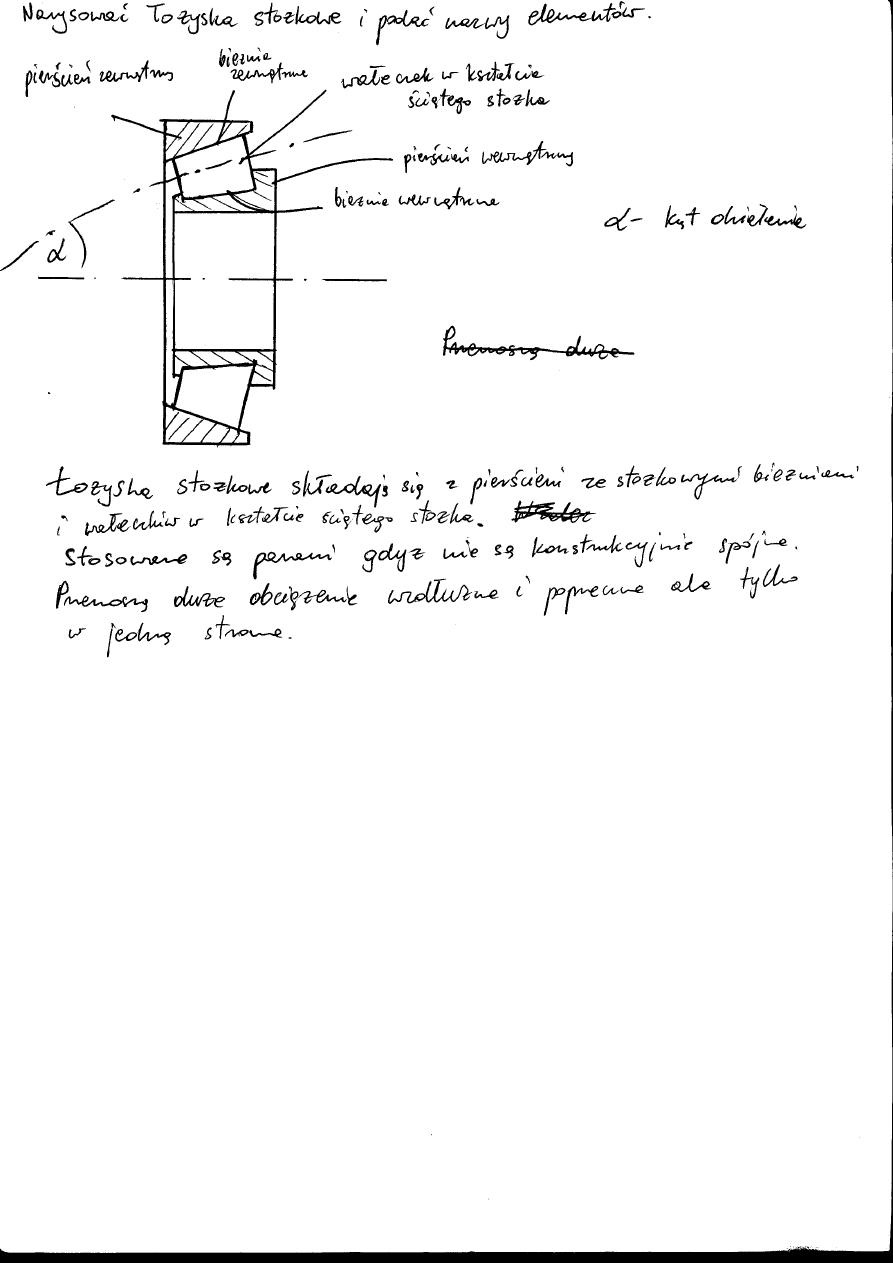 Narysować Łożyska stożkowe i podać nazwy elementów.
pierścień zewnętrzny
bieżnia
zewnętrzna
wałeczek w kształcie
ściętego stożka
pierścień wewnętrzny
bieżnia wewnętrzna
α
α- kąt działania
Przenoszą duże
Łożyska stożkowe składają się z pierścieni ze stożkowymi bieżniami
i wałeczków w kształcie ściętego stożka.
Stosowane są parami gdyż nie są konstrukcyjnie spójne.
Przenoszą duże obciążenie wzdłużne i poprzeczne ale tylko
w jedną stronę.